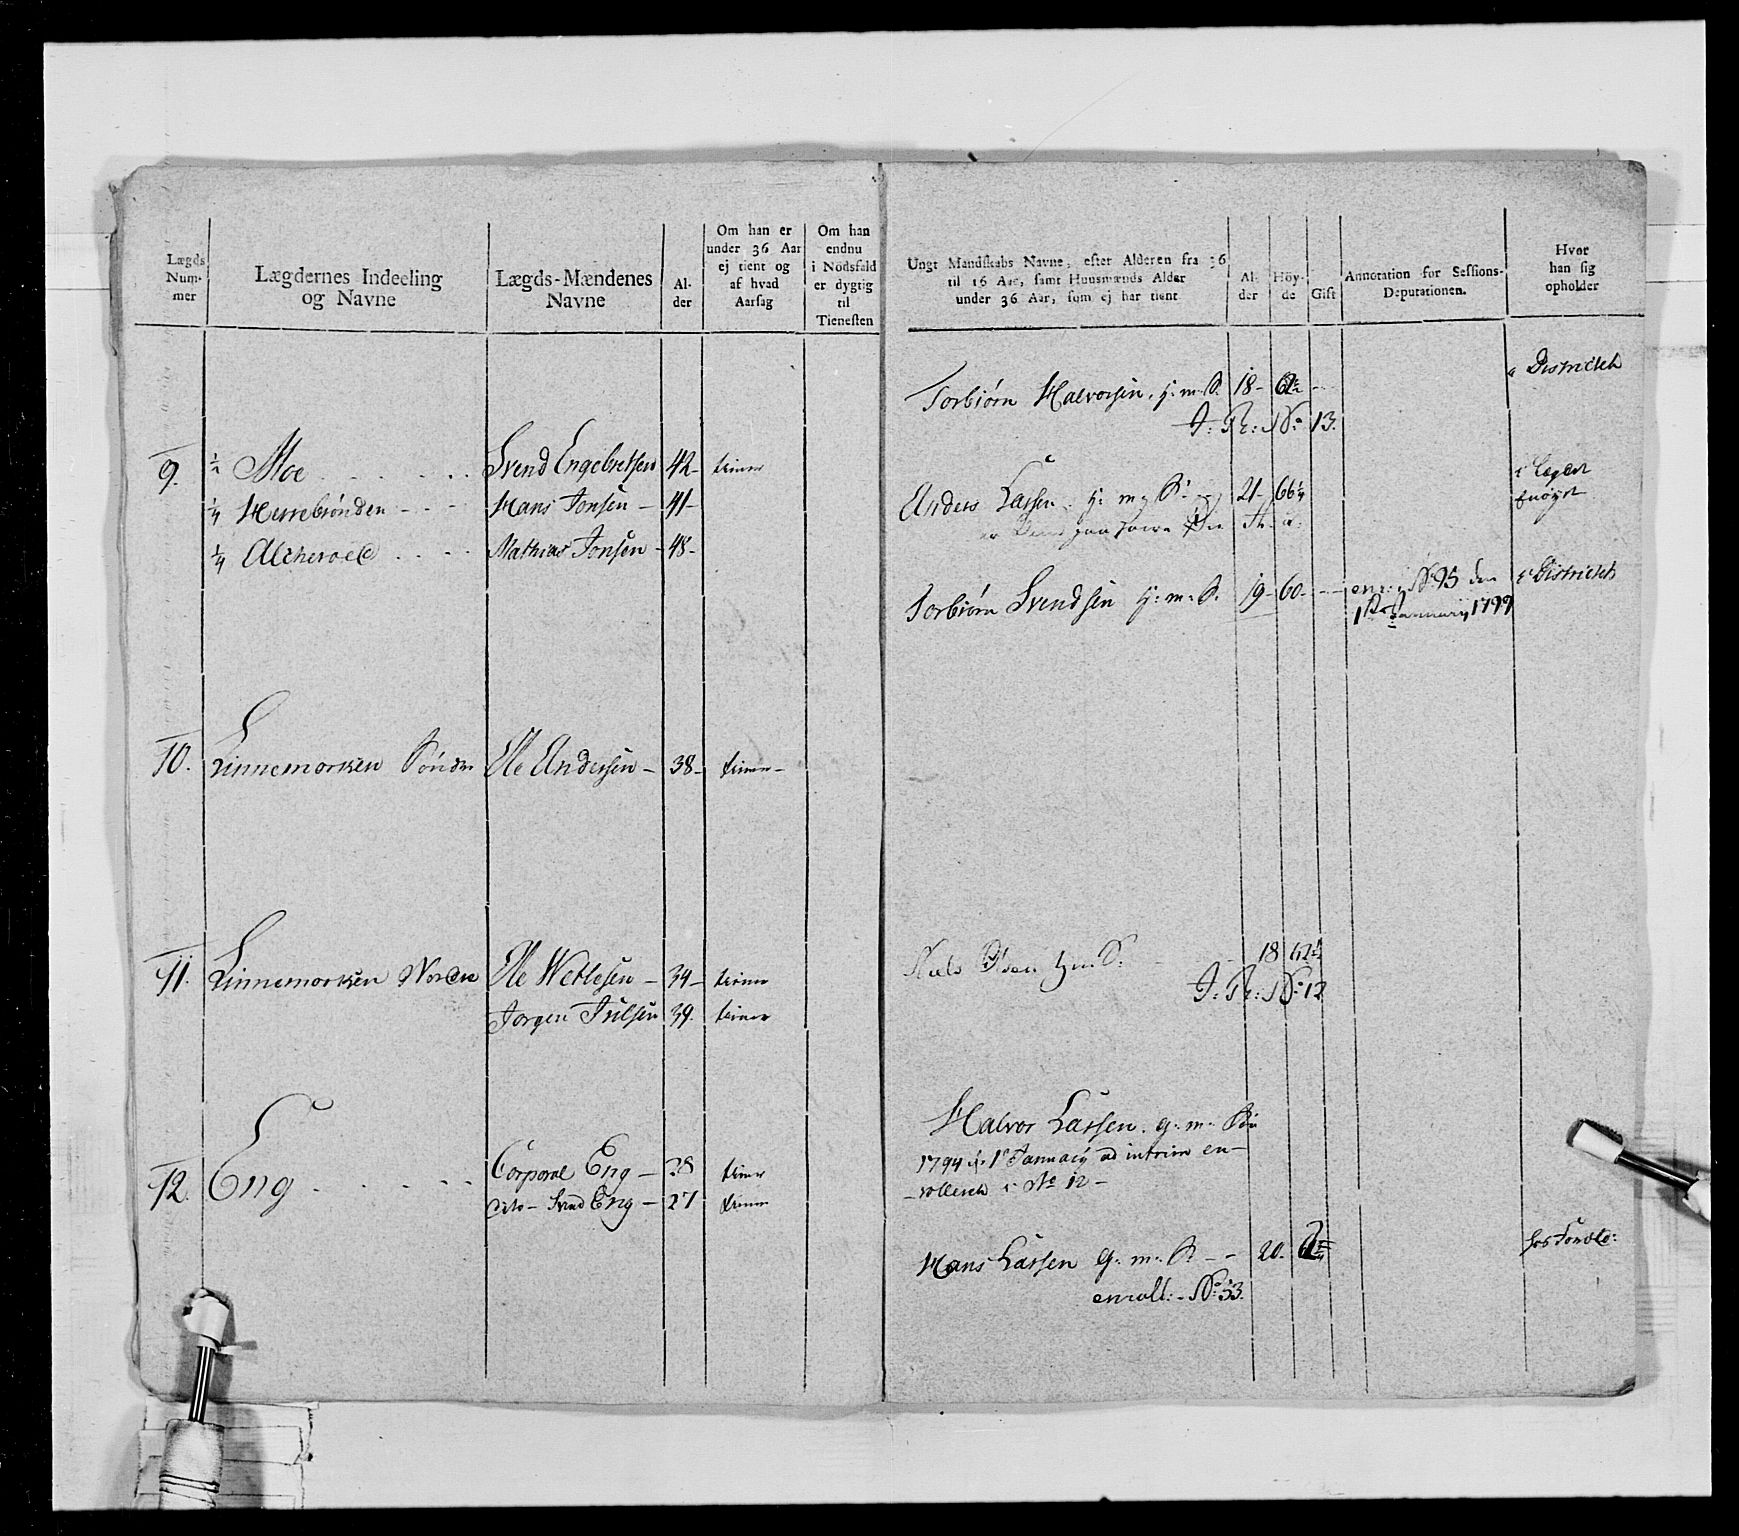 Lægds Num- mer
Lægdernes Indeeling og Navne
Lægds-Mændenes Navne
Al- der
Om han er under 36 Aar ej tient og af hvad Aarsag
Om han endnu i Nödsfald er dygtig til Tienesten
9. ½ Moe Svend Engebretsen 42- tiener
¼ Herrebrönden Hans Jonsen - 41-
¼ Alcheroed Mathias Jonsen - 48-
10. Linnemorken Sönder Ole Andersen - 38- tiener-
11. Linnemorken Nordre Ole Wetlesen - 34- tiener
Jorgen Juelsen 39. tiener
12. Eng Corporal Eng - 28 tiener
dito - Svend Eng - 27 tiener
Ungt Mandskabs Navne, efter Alderen fra 36 til 16 Aar, samt Huusmænds Alder under 36 Aar, som ej har tient
Al- der
Höy- de
Gift
Annotation for Sessions- Deputationen.
Hvor han sig opholder
Torbiörn Halvorsen, h: m: S. 18- i Districtet
J: R: No 13.
Anders Larsen. h: m: S: 21- 66¼ i Legdet
Torbiörn Svendsen h: m: S. 19- 60- enr: No 95 den i Districtet
1ste January 1799
Niels Olsen h m S. 18 62½
J: R: No 12
Halvor Larsen. g: m: Sön
1794 d. 1ste January ad intrim en-
-rolleret i No 12-
Hans Larsen g: m: S. - - 20.
enroll: - No 53.